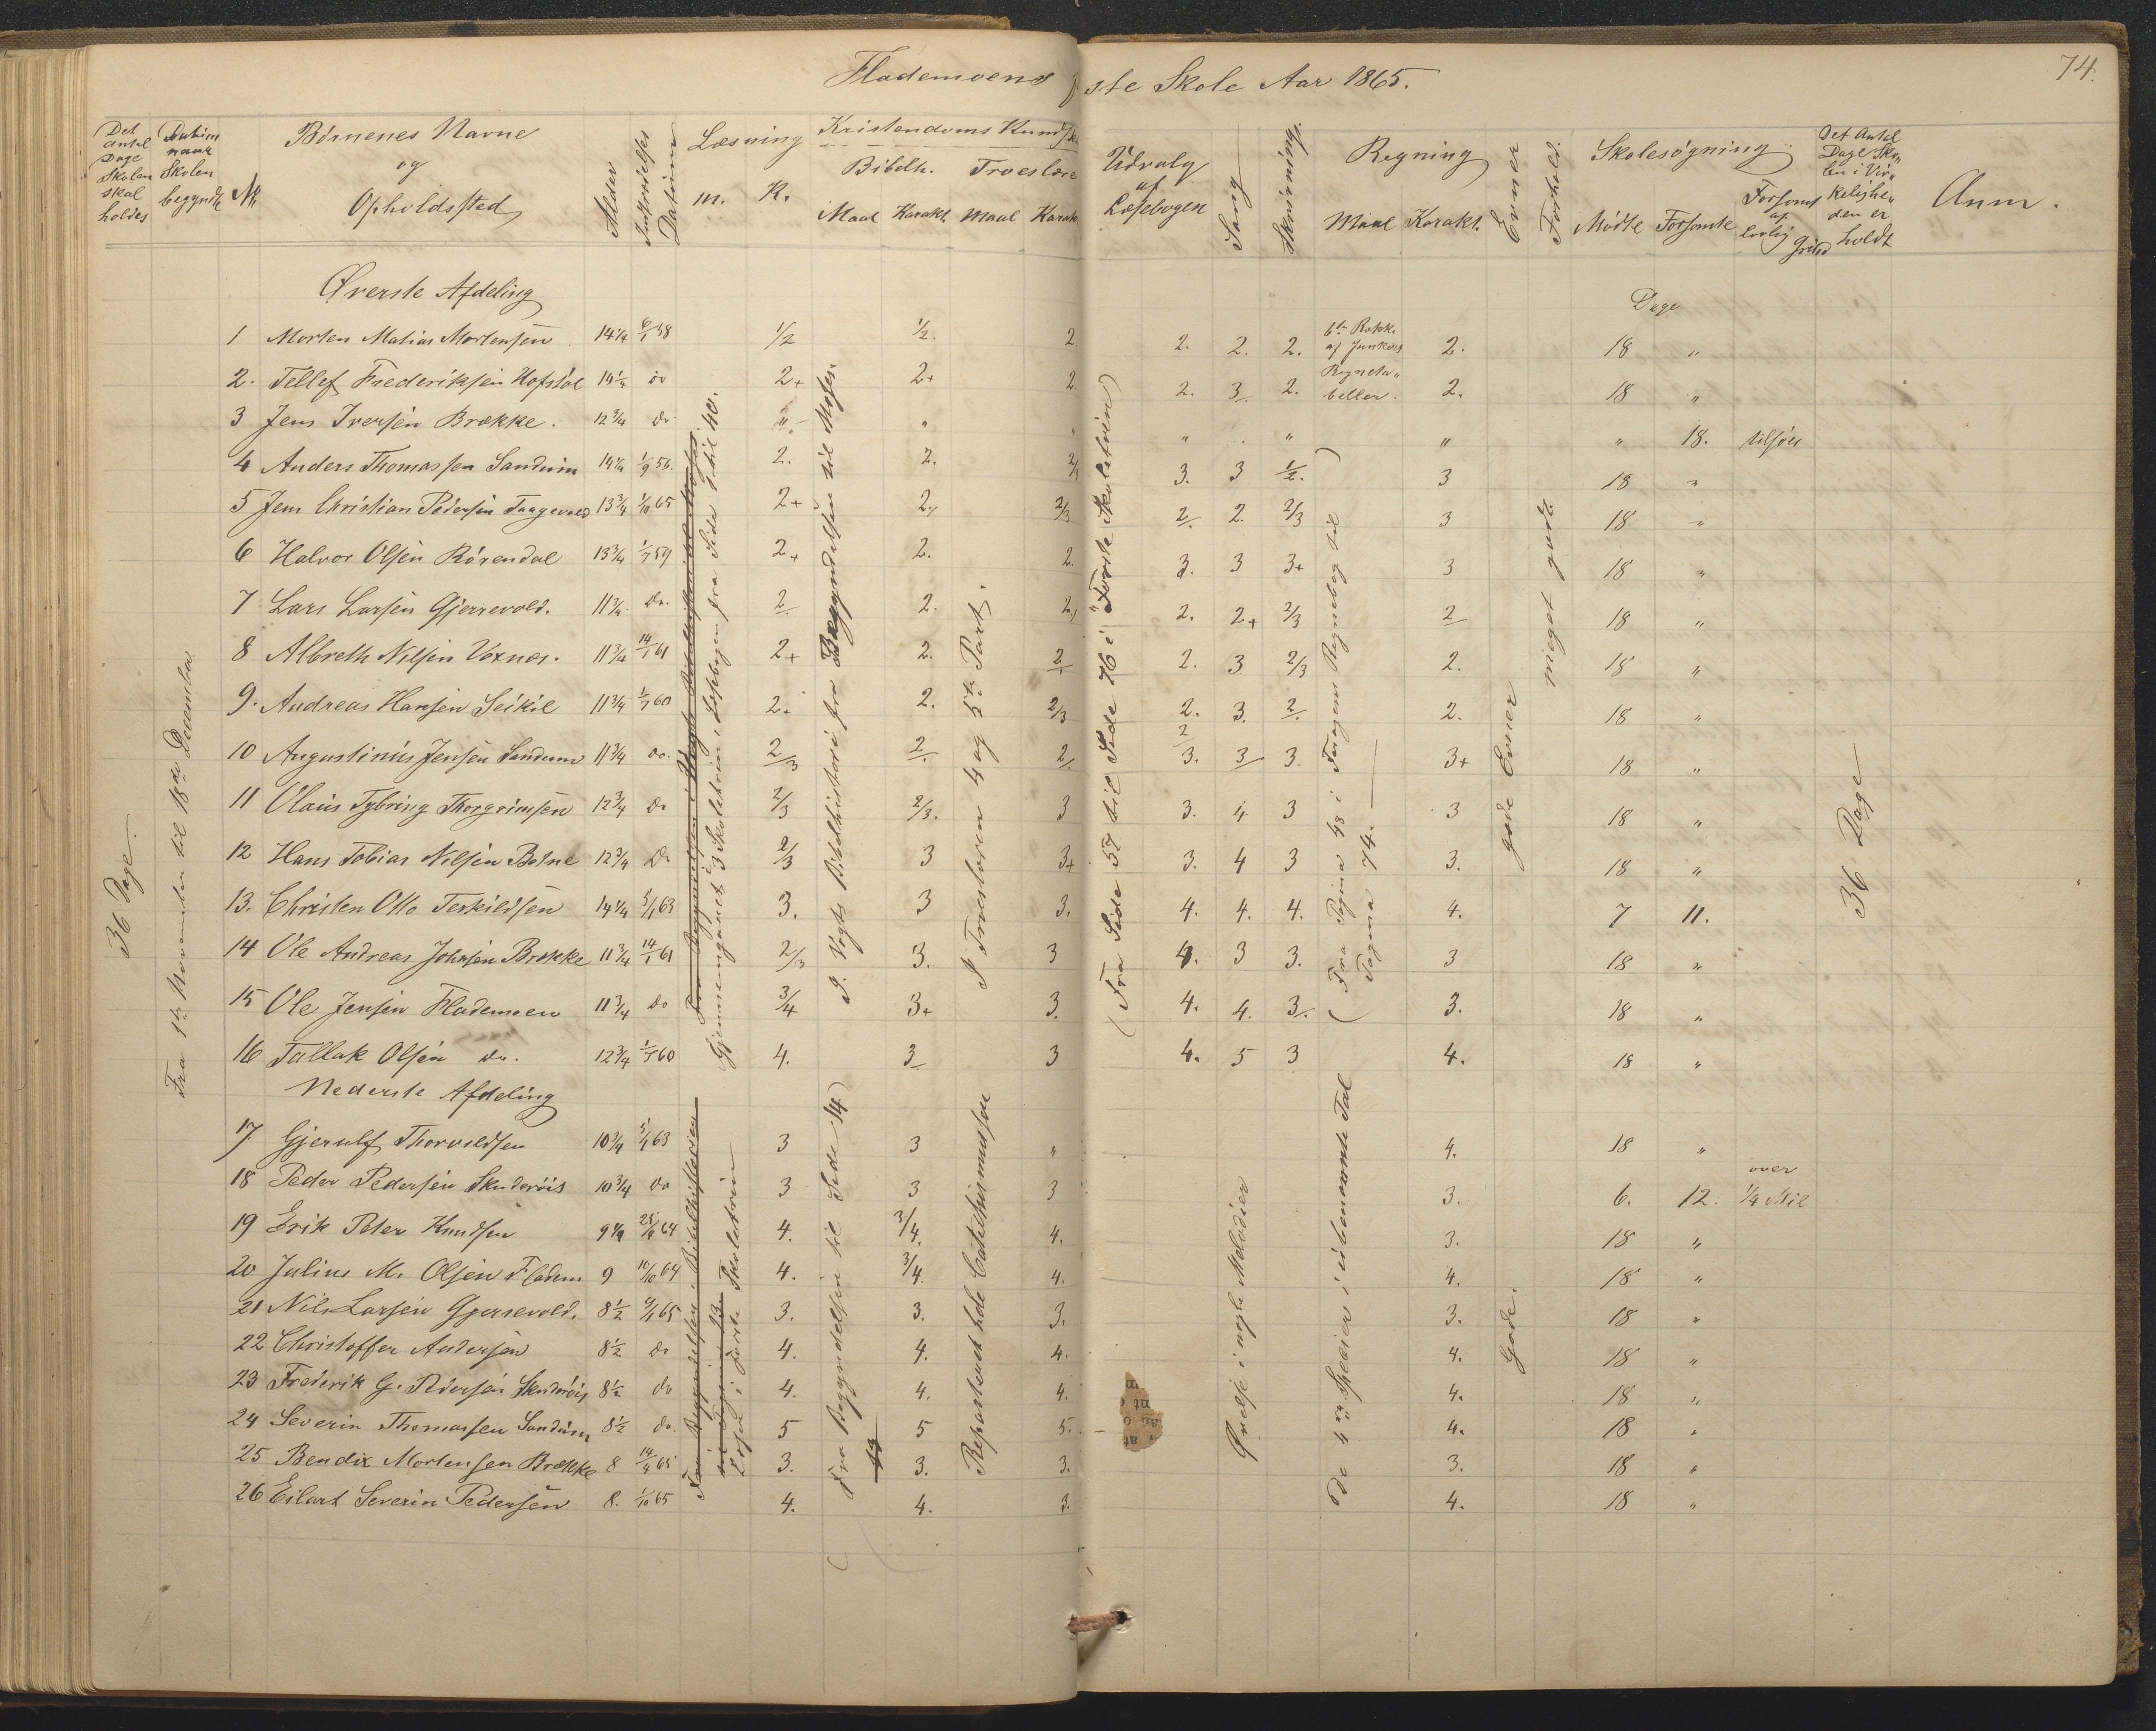 74.
Flademoens faste Skole Aar 1865.
Det antal Dage Skolen skal holdes
Datum naar Skolen begyndte
№
Børnenes Navne og Opholdssted
Alder
Indtrædelses Datum
Læsning
m. K.
Kristendoms Kundsk
Bibelh. Troeslære
Maal Karakt. Maal Karak
Udvalg af Læsebogen
Sang
Skrivning
Regning
Maal Karakt.
Evner
Forhold
Skolesøgning
Mødte Forsømte Forsømt af lovlig Grund
Det Antal Dage Skolen i Virkeligheden er holdt
Anm.
Øverste Afdeling
Dage
1 Morten Matias Mortensen 14 1/4 6/1 58 1/2 1/2. 2 2. 2. 2. 2. 18 "
2. Tellef Frederiksen Hofstøl 14 1/4 do 2+ 2+ 2 2. 3 2. 2. 18 "
3 Jens Iversen Brække. 12 3/4 do " " " " . " " " 18. tilsøes
4 Anders Thomassen Sandum 14 1/4 1/9 56. 2. 2. 2/3 3. 3 1/2. 3 18 "
5 Jens Christian Pedersen Taagevold 13 3/4 1/10 65 2+ 2. 2/3 2. 2. 2/3 3 18 "
6 Halvor Olsen Rørendal 13 3/4 1/7 59 2+ 2. 2. 3. 3 3+ 3 18 "
7 Lars Larsen Gjerrevold. 11 3/4 do. 2 2. 2. 2. 2+ 2/3 2 18 "
8 Albreth Nilsen Vexnes. 11 3/4 14/1 61 2+ 2. 2 2. 3 2/3 2. 18 "
9. Andreas Hansen Seikil 11 3/4 1/7 60 2. 2. 2/3 2. 3. 2. 2. 18 "
10 Augustinius Jensen Sandum 11 3/4 do. 2/3 2. 2. 3. 3 3. 3+ 18 "
11 Olaus Tybring Thorgrimsen 12 3/4 do 2/3 2/3. 3 3. 4 3 3 18 "
12 Hans Tobias Nilsen Botne 12 3/4 do 2/3 3 3+ 3. 4 3 3. 18 "
13. Christen Otto Terkildsen 14 1/4 5/1 63 3. 3 3. 4. 4. 4. 4. 7 11.
14 Ole Andreas Johnsen Brække 11 3/4 14/1 61 2/3 3. 3 4. 3 3. 3 18 "
15 Ole Jensen Flademoen 11 3/4 do 3/4 3+ 3. 4. 4. 3. 3. 18 "
16 Tallak Olsen do. 12 3/4 1/7 60 4. 3 3 4. 5 3 4. 18 "
Nederste Afdeling
17 Gjerulf Thorvaldsen 10 3/4 5/1 63 3 3 " 4. 18 "
18 Peder Pedersen Skuderøis 10 3/4 do 3 3 3 3. 6. 12. over 1/4 Mil
19 Erik Peter Knudsen 9 1/4 64 4. 3/4. 4. 3. 18 "
20 Julius M. Olsen Fladem 9 10/10 64 4. 3/4. 4. 4. 18 "
21 Nils Larsen Gjerrevold. 8 1/2 65 3. 3. 3. 3. 18 "
22 Christoffer Andersen 8 1/2 do 4. 4. 4. 4. 18 "
23 Frederik G. Pedersen Skuderøis 8 1/2 do 4. 4. 4. 4. 18 "
24 Severin Thomassen Sandum 8 1/2 do. 5 5 5. 4. 18 "
25 Bendix Mortensen Brække 8 14/4 65 3. 3. 3. 3. 18 "
26 Eilart Severin Pedersen 8. 1/10 65 4. 4. 3. 4. 18 "
36 Dage.
Fra 1te November til 18de December
Fra Begyndelsen i Vogts Bibelhistori til Moses
Gjennemgaaet 3 Skoletrin i Læsebogen fra Side 1 til 40.
I. Vogts Bibelhistori fra Begyndelsen til Moses.
I Troeslæren 4 og 5te Part.
(Fra Side 57 til Side 76 i "Første Skoletrin)
6te Række af Junkers Regnetabeller.
(Fra Pagina 48 i Fangens Regnebog til Pagina 74.)
gode Evner
meget godt
36 Dage
Fra Begyndelsen i Bibelhistorien til Pagina 13
Læse i første Skoletrin
(Fra Begyndelsen til Side 14)
13
Reparteret hele Catechismussen
Øvelse i nogle Melodier
De 4 Specier i ubenævnte Tal
Gode.